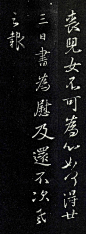 喪兒女不可為心如何得廿
三日書為慰及還不次羲
之報